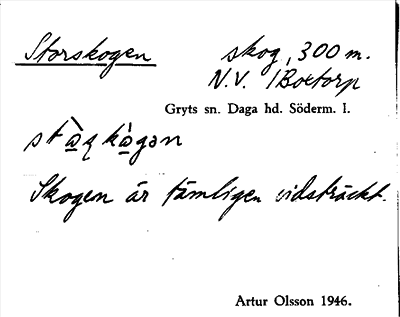 Storskogen skog, 300 m.
N.V. /Boxtorp
Gryts sn. Daga hd. Söderm. l.
Skogen är tämligen vidsträckt.
Artur Olsson 1946.